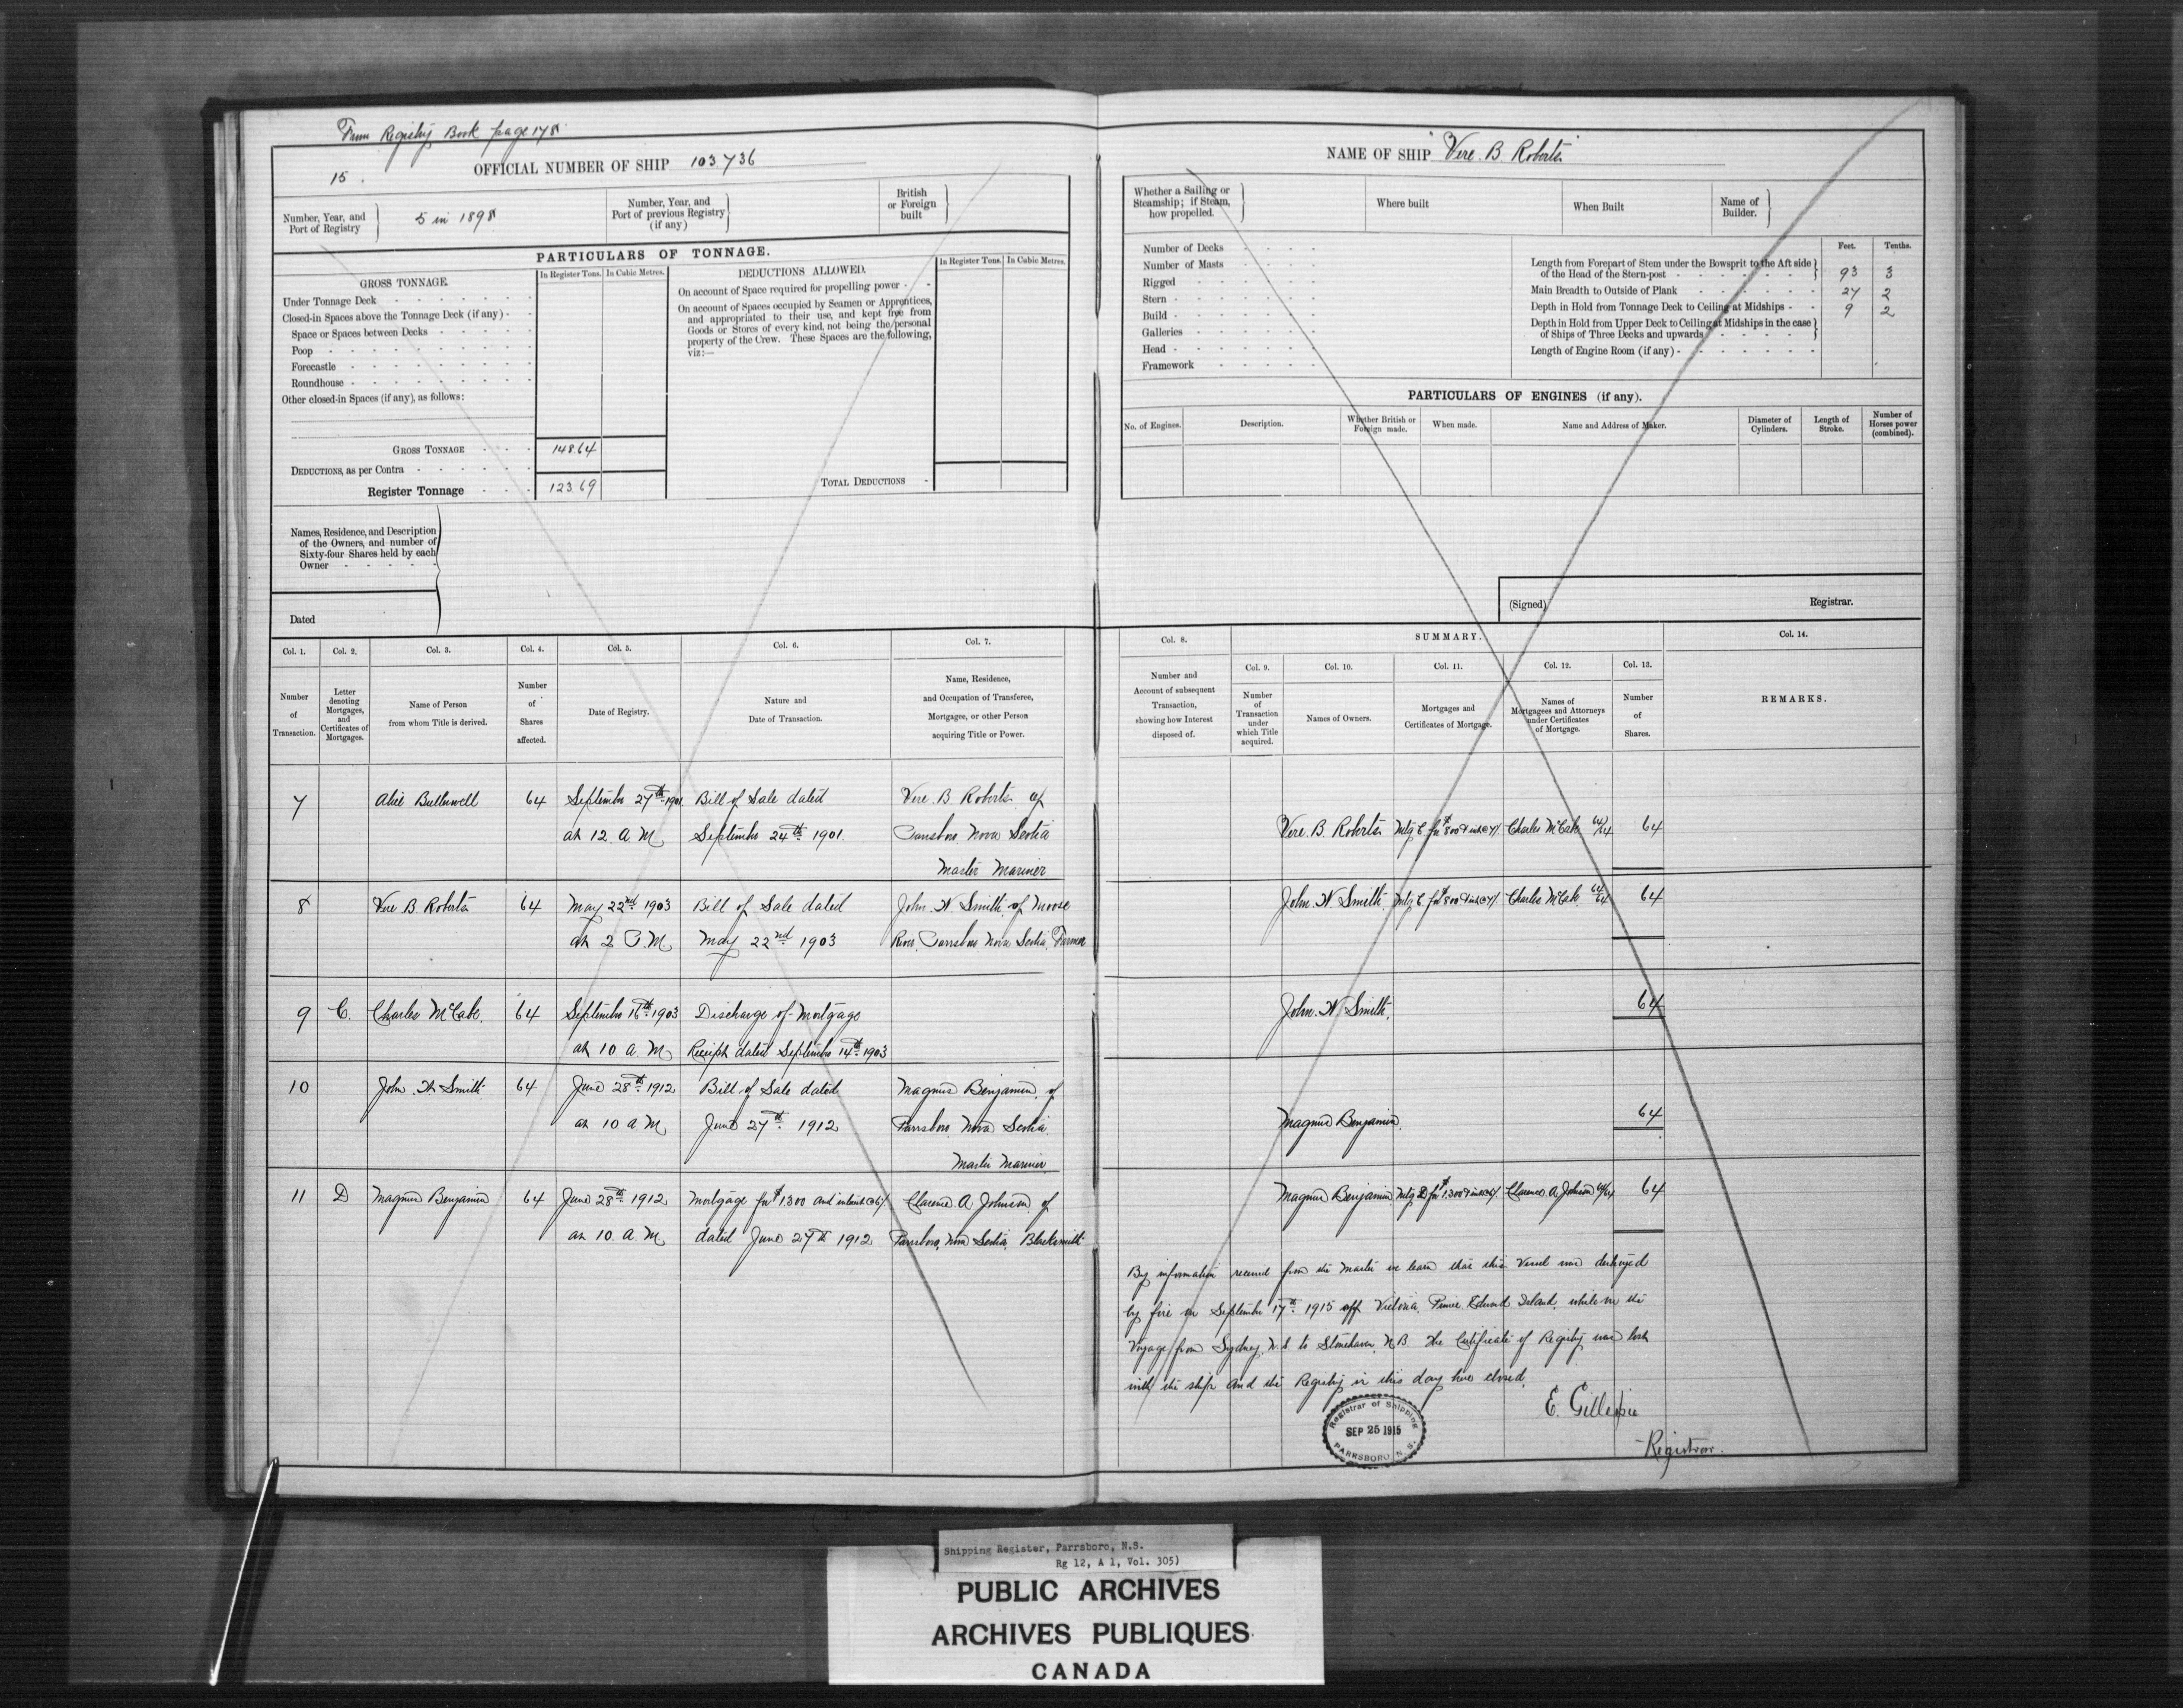 From Registry Book page 178
15.
OFFICIAL NUMBER OF SHIP 103736
Number, Year, and Port of Registry
5 in 1898
Number, Year, and Port of previous Registry (if any)
British or Foreign built
PARTICULARS OF TONNAGE.
GROSS TONNAGE.
In Register Tons.
In Cubic Metres.
Under Tonnage Deck
Closed-in Spaces above the Tonnage Deck (if any)
Space or Spaces between Decks
Poop
Forecastle
Roundhouse
Other closed-in Spaces (if any), as follows:
GROSS TONNAGE 148.64
DEDUCTIONS, as per Contra
Register Tonnage 123.69
DEDUCTIONS ALLOWED.
In Register Tons.
In Cubic Metres.
On account of Space required for propelling power
On account of Spaces occupied by Seamen or Apprentices,
and appropriated to their use, and kept free from
Goods or Stores of every kind, not being the personal
property of the Crew. These Spaces are the following,
viz:—
TOTAL DEDUCTIONS
Names, Residence, and Description
of the Owners, and number of
Sixty-four Shares held by each
Owner
Dated
Col. 1.
Number of Transaction.
Col. 2.
Letter denoting Mortgages, and Certificates of Mortgages.
Col. 3.
Name of Person from whom Title is derived.
Col. 4.
Number of Shares affected.
Col. 5.
Date of Registry.
Col. 6.
Nature and Date of Transaction.
Col. 7.
Name, Residence, and Occupation of Transferee, Mortgagee, or other Person acquiring Title or Power.
7 64 September 27th 1901 Bill of Sale dated Vere. B Roberts of
at 12. A. M. September 24th 1901. Parrsboro Nova Scotia
Master Mariner
8 Vere B. Roberts 64 May 22nd 1903 Bill of Sale dated John. W. Smith of Moose
at 2 P. M. May 22nd 1903 River, Parrsboro Nova Scotia, Farmer
9 C. Charles McCabe. 64 September 16th 1903 Discharge of Mortgage
at 10 A. M. Receipt dated September 14th 1903
10 John. W. Smith 64 June 28th 1912 Bill of Sale dated Magnus Benjamin, of
at 10 A. M. June 27th 1912 Parrsboro, Nova Scotia
Master Mariner
11 D Magnus Benjamin 64 June 28th 1912 Mortgage for $1300 and interest @
at 10. A. M. dated June 27th 1912 Clarence A. Johnson of
Parrsboro, Nova Scotia, Blacksmith
NAME OF SHIP "Vere. B Roberts"
Whether a Sailing or Steamship; if Steam, how propelled.
Where built
When Built
Name of Builder.
Number of Decks
Number of Masts
Rigged
Stern
Build
Galleries
Head
Framework
Feet. Tenths.
Length from Forepart of Stem under the Bowsprit to the Aft side
of the Head of the Stern-post 93 3
Main Breadth to Outside of Plank 27 2
Depth in Hold from Tonnage Deck to Ceiling at Midships 9 2
Depth in Hold from Upper Deck to Ceiling at Midships in the case
of Ships of Three Decks and upwards
Length of Engine Room (if any)
PARTICULARS OF ENGINES (if any).
No. of Engines.
Description.
Whether British or Foreign made.
When made.
Name and Address of Maker.
Diameter of Cylinders.
Length of Stroke.
Number of Horses power (combined).
(Signed) Registrar.
Col. 8.
Number and Account of subsequent Transaction, showing how Interest disposed of.
SUMMARY.
Col. 9.
Number of Transaction under which Title acquired.
Col. 10.
Names of Owners.
Col. 11.
Mortgages and Certificates of Mortgage.
Col. 12.
Names of Mortgagees and Attorneys under Certificates of Mortgage.
Col. 13.
Number of Shares.
Col. 14.
REMARKS.
Vere. B. Roberts Mtg C. for $800 & int @ 7/ Charles McCabe 64/64 64
John. W. Smith. Mtg C. for $800 & int @ 7/ Charles McCabe 64/64 64
John. W. Smith. 64
Magnus Benjamin. 64
Magnus Benjamin Mtg D for $1300 & int @ Clarence A. Johnson 64/64 64
By information received from the Master we learn that this Vessel was destroyed
by fire on September 17th 1915 off Victoria, Prince Edward Island, while on the
Voyage from Sydney, N.S to Stonehaven, N.B. The Certificate of Registry was lost
with the ship and the Registry is this day here closed.
E. Gillespie
Registrar.
Registrar of Shipping
SEP 25 1915
PARRSBORO, N. S.
Shipping Register, Parrsboro, N.S.
Rg 12, A 1, Vol. 305)
PUBLIC ARCHIVES
ARCHIVES PUBLIQUES
CANADA